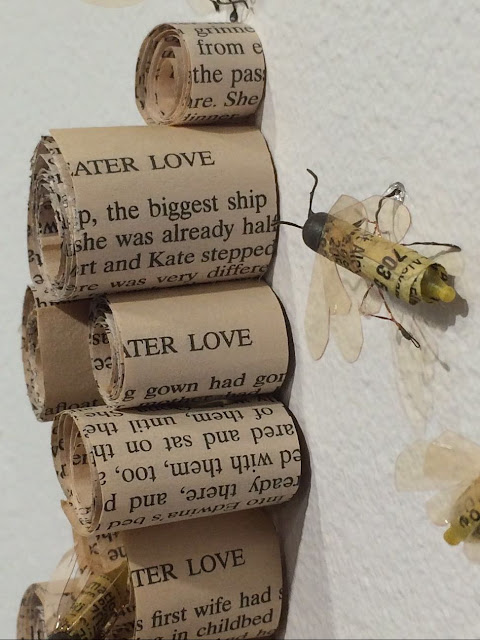 grinne
from e
the pass
are. She
dinner
EATER LOVE
p, the biggest ship
she was already half
Art and Kate stepped
re was very differe
ATER LOVE
g gown had gon
afloat mother had
of them, until the
ared and sat on th
ed with them, too, a
ready there, and p
into Edwina's bed
TER LOVE
s first wife had s
g in childbed
703